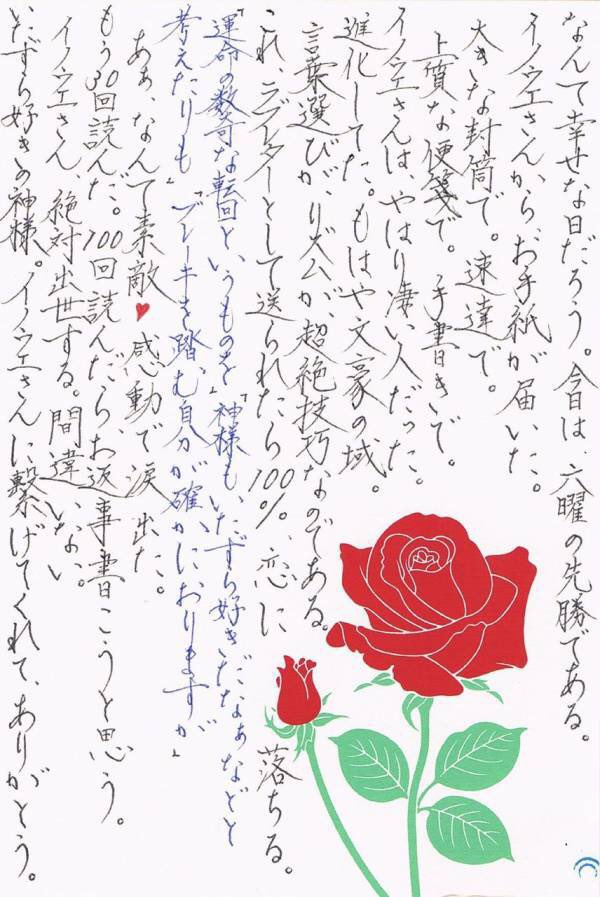 なんて幸せな日だろう。今日は、六曜の先勝である。
イノウエさんから、お手紙が届いた。
大きな封筒で。速達で。
上質な便箋で。手書きで。
イノウエさんは、やはり凄い人だった。
進化してた。もはや文豪の域。
言葉選びが、リズムが、超絶技巧なのである。
これ、ラブレターとして送られたら100%、恋に落ちる。
「運命の数奇な転回というものを」「神様も、いたずら好きだなぁなどと
考えたりも」「ブレーキを踏む自分が確かにおりますが」
あぁ、なんて素敵♥感動で涙出た。
もう30回読んだ。100回読んだら、お返事書こうと思う。
イノウエさん、絶対出世する。間違いない。
いたずら好きの神様。イノウエさんに繋げてくれて、ありがとう。